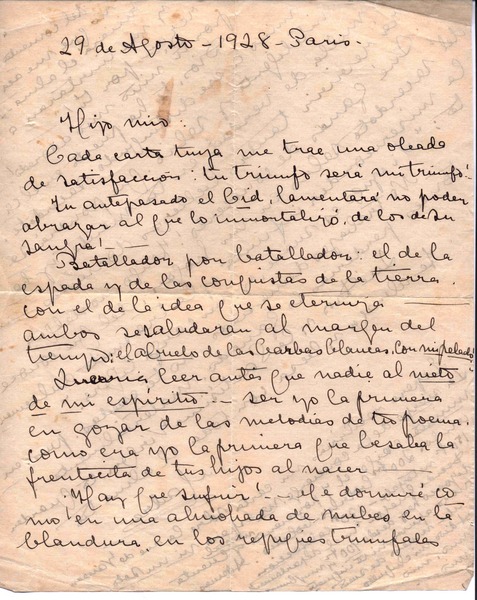 29 de Agosto - 1928 - Paris.
Hijo mio:
Cada carta tuya me trae una oleada
de satisfacción: tu triunfo será mi triunfo!
Tu antepasado el Cid, lamentará no poder
abrazar al que lo inmortalizó, de los de su
sangre! -
Batallador por batallador: el de la
espada y de las conquistas de la tierra,
con el de la idea que se eterniza
ambos se saludarán al margen del
tiempo: el abuelo de las barbas blancas, con mi pelado!
leer antes que nadie al nieto
de mi espiritu - ser yo la primera
en gozar de las melodias de tu poema,
como era yo la primera que besaba la
frentecita de tus hijos al nacer
¡Hay que sufrir! - te dormiré co
mo en una almohada de nubes en la
blandura, en los repliegues triunfales